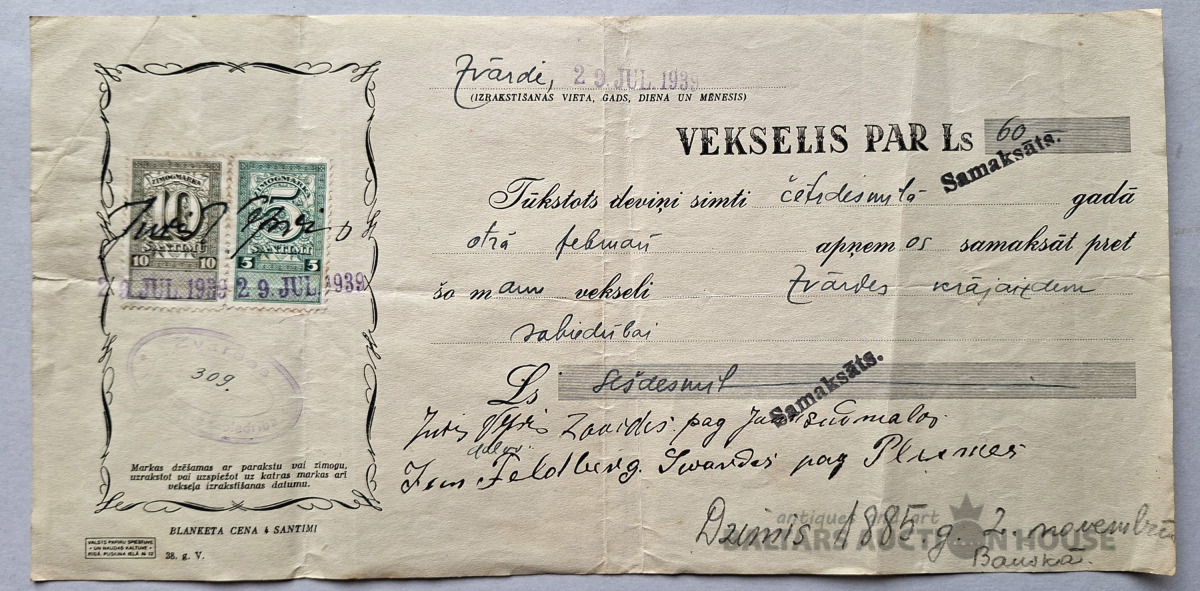 Zvārdē, 29. JUL. 1939
(IZRAKSTĪŠANAS VIETA, GADS, DIENA UN MĒNESIS)
VEKSELIS PAR Ls 60
Samaksāts.
Tūkstots deviņi simti četrdesmitā gadā
otrā februarī apņemos samaksāt pret
šo manu vekseli Zvārdes krājaizdevu
sabiedrībai
Ls sešdesmit
Samaksāts.
Juris Zvārdes pag.
Feldberg. Swardes pag Plūmes
Dzimis 1885 g. 2. novembrī
Bauskā.
ZĪMOGMARKA ZĪMOGMARKA
10 5
SANTĪMI SANTĪMI
10 10 5 5
Juris
29. JUL. 1939 29. JUL. 1939
309.
Markas dzēšamas ar parakstu vai zīmogu,
uzrakstot vai uzspiežot uz katras markas arī
vekseļa izrakstīšanas datumu.
BLANKETA CENA 4 SANTIMI
VALSTS PAPĪRU SPIESTUVE
UN NAUDAS KALTUVE
RĪGĀ, PUŠKINA IELĀ № 12
38. g. V.
antiques and art
BALTARS AUCTION HOUSE